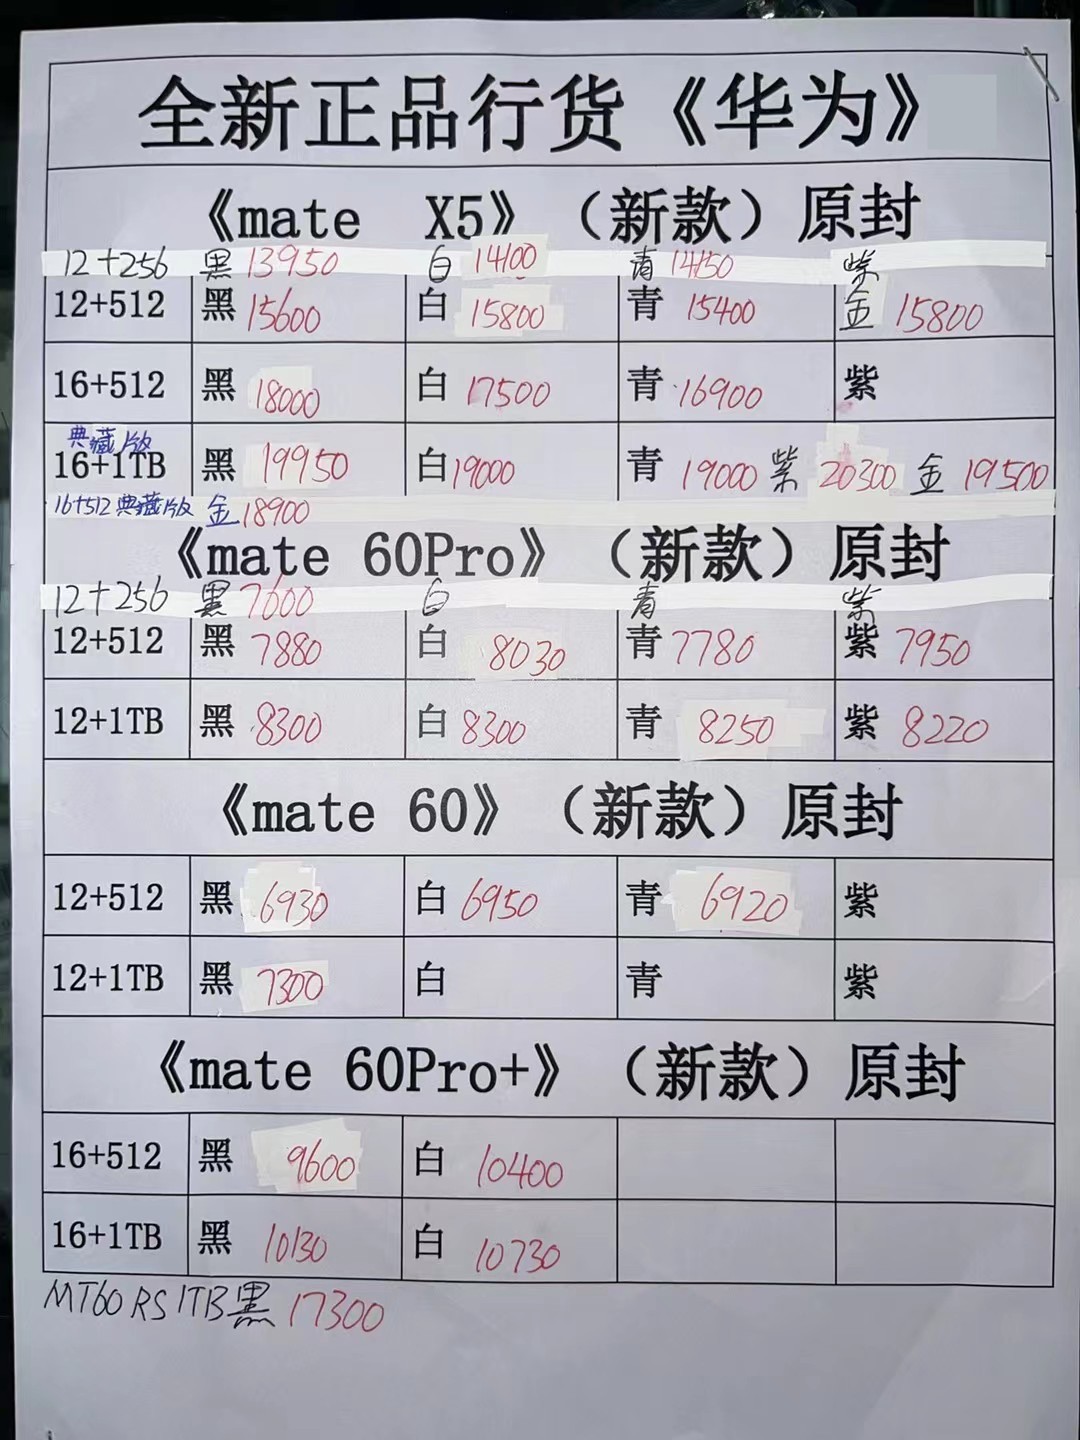 全新正品行货《华为》
《mate X5》（新款）原封
12+256 黑 13950 白 14100 青 14150 紫
12+512 黑 15600 白 15800 青 15400 金 15800
16+512 黑 18000 白 17500 青 16900 紫
典藏版
16+1TB 黑 19950 白 19000 青 19000 紫 20300 金 19500
16+512 典藏版 金 18900
《mate 60Pro》（新款）原封
12+256 黑 7600 白 青 紫
12+512 黑 7880 白 8030 青 7780 紫 7950
12+1TB 黑 8300 白 8300 青 8250 紫 8220
《mate 60》（新款）原封
12+512 黑 6930 白 6950 青 6920 紫
12+1TB 黑 7300 白 青 紫
《mate 60Pro+》（新款）原封
16+512 黑 9600 白 10400
16+1TB 黑 10130 白 10730
MT60 RS 1TB 黑 17300